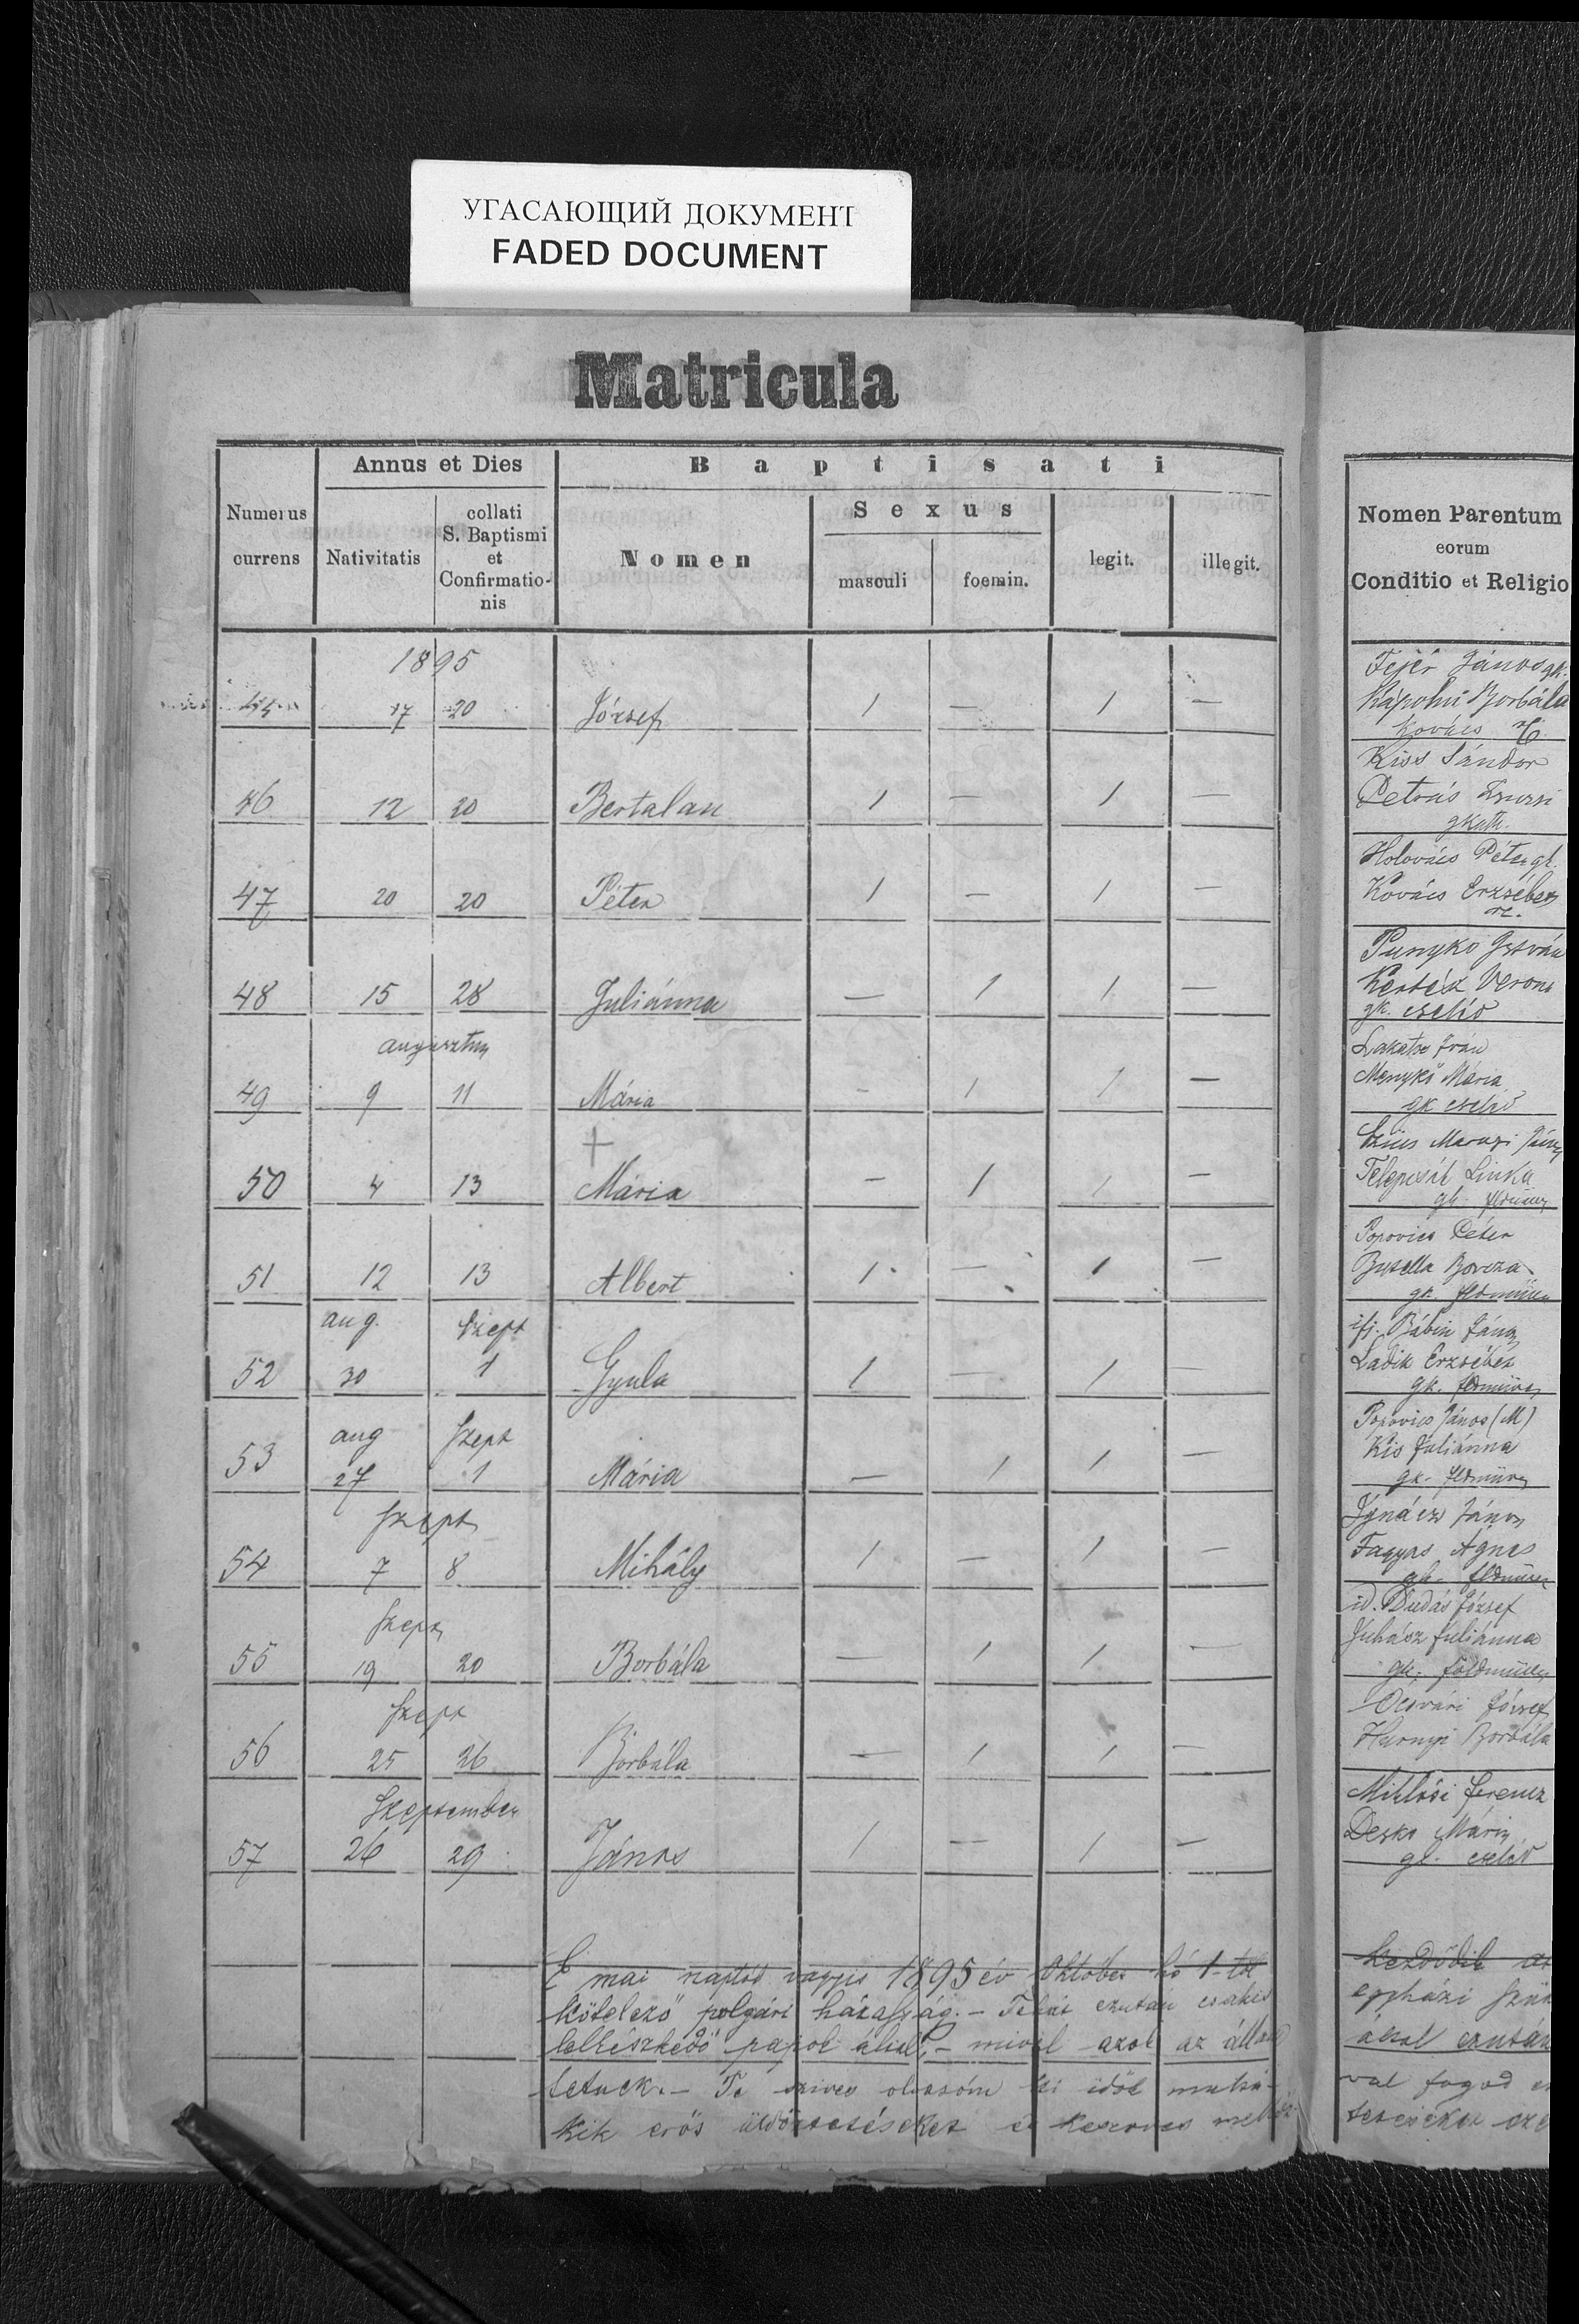 УГАСАЮЩИЙ ДОКУМЕНТ
FADED DOCUMENT
Matricula
Numerus currens
Annus et Dies
Nativitatis
collati
S. Baptismi
et
Confirmatio-
nis
Baptisati
Nomen
Sexus
masculi
foemin.
legit.
illegit.
Nomen Parentum
eorum
Conditio et Religio
1895
17 20 József 1 — 1 —
Fejér János gk.
Kápolni Borbála
Kovács
46 12 20 Bertalan 1 — 1 —
Kiss Sándor
Petrás Zsuzsi
gkath.
47 20 20 Péter 1 — 1 —
Holovács Péter gk.
Kovács Erzsébet
rc.
48 15 28 Juliánna — 1 1 —
Punyko István
Kertész Verona
gk. cseléd
augusztus
49 9 11 Mária - 1 1 —
Lakatos
Menykő Mária
gk cseléd
+
50 4 13 Mária - 1 1 —
Szücs
Linka
gk.
51 12 13 Albert 1 — 1 —
Popovics Péter
gk.
aug. Szept
52 30 1 Gyula 1 — 1 —
ifj. Bábin János
Ladik Erzsébet
gk.
aug Szept
53 27 1 Mária — 1 1 —
Popovics János (M)
Kis Juliánna
gk.
Szept
54 7 8 Mihály 1 — 1 —
Ignácz János
Fagyas Ágnes
gk.
Szept
55 19 20 Borbála — 1 1 —
id. Dudás József
Juhász Juliánna
gk.
Szept
56 25 26 Borbála — 1 1 —
József
Borbála
Szeptember
57 26 29 János 1 — 1 —
Miklósi Ferencz
Desko Mária
gk. cseléd
E mai naptól vagyis 1895 év Október hó 1-től kezdődik
kötelező polgári házasság. — Tehát ezután csakis egyházi
lelkészkedő papok által, — mivel azok az által ezután
— Te szives olvasóm ki időt fogod
kik erős üldöztetéseket és keserves